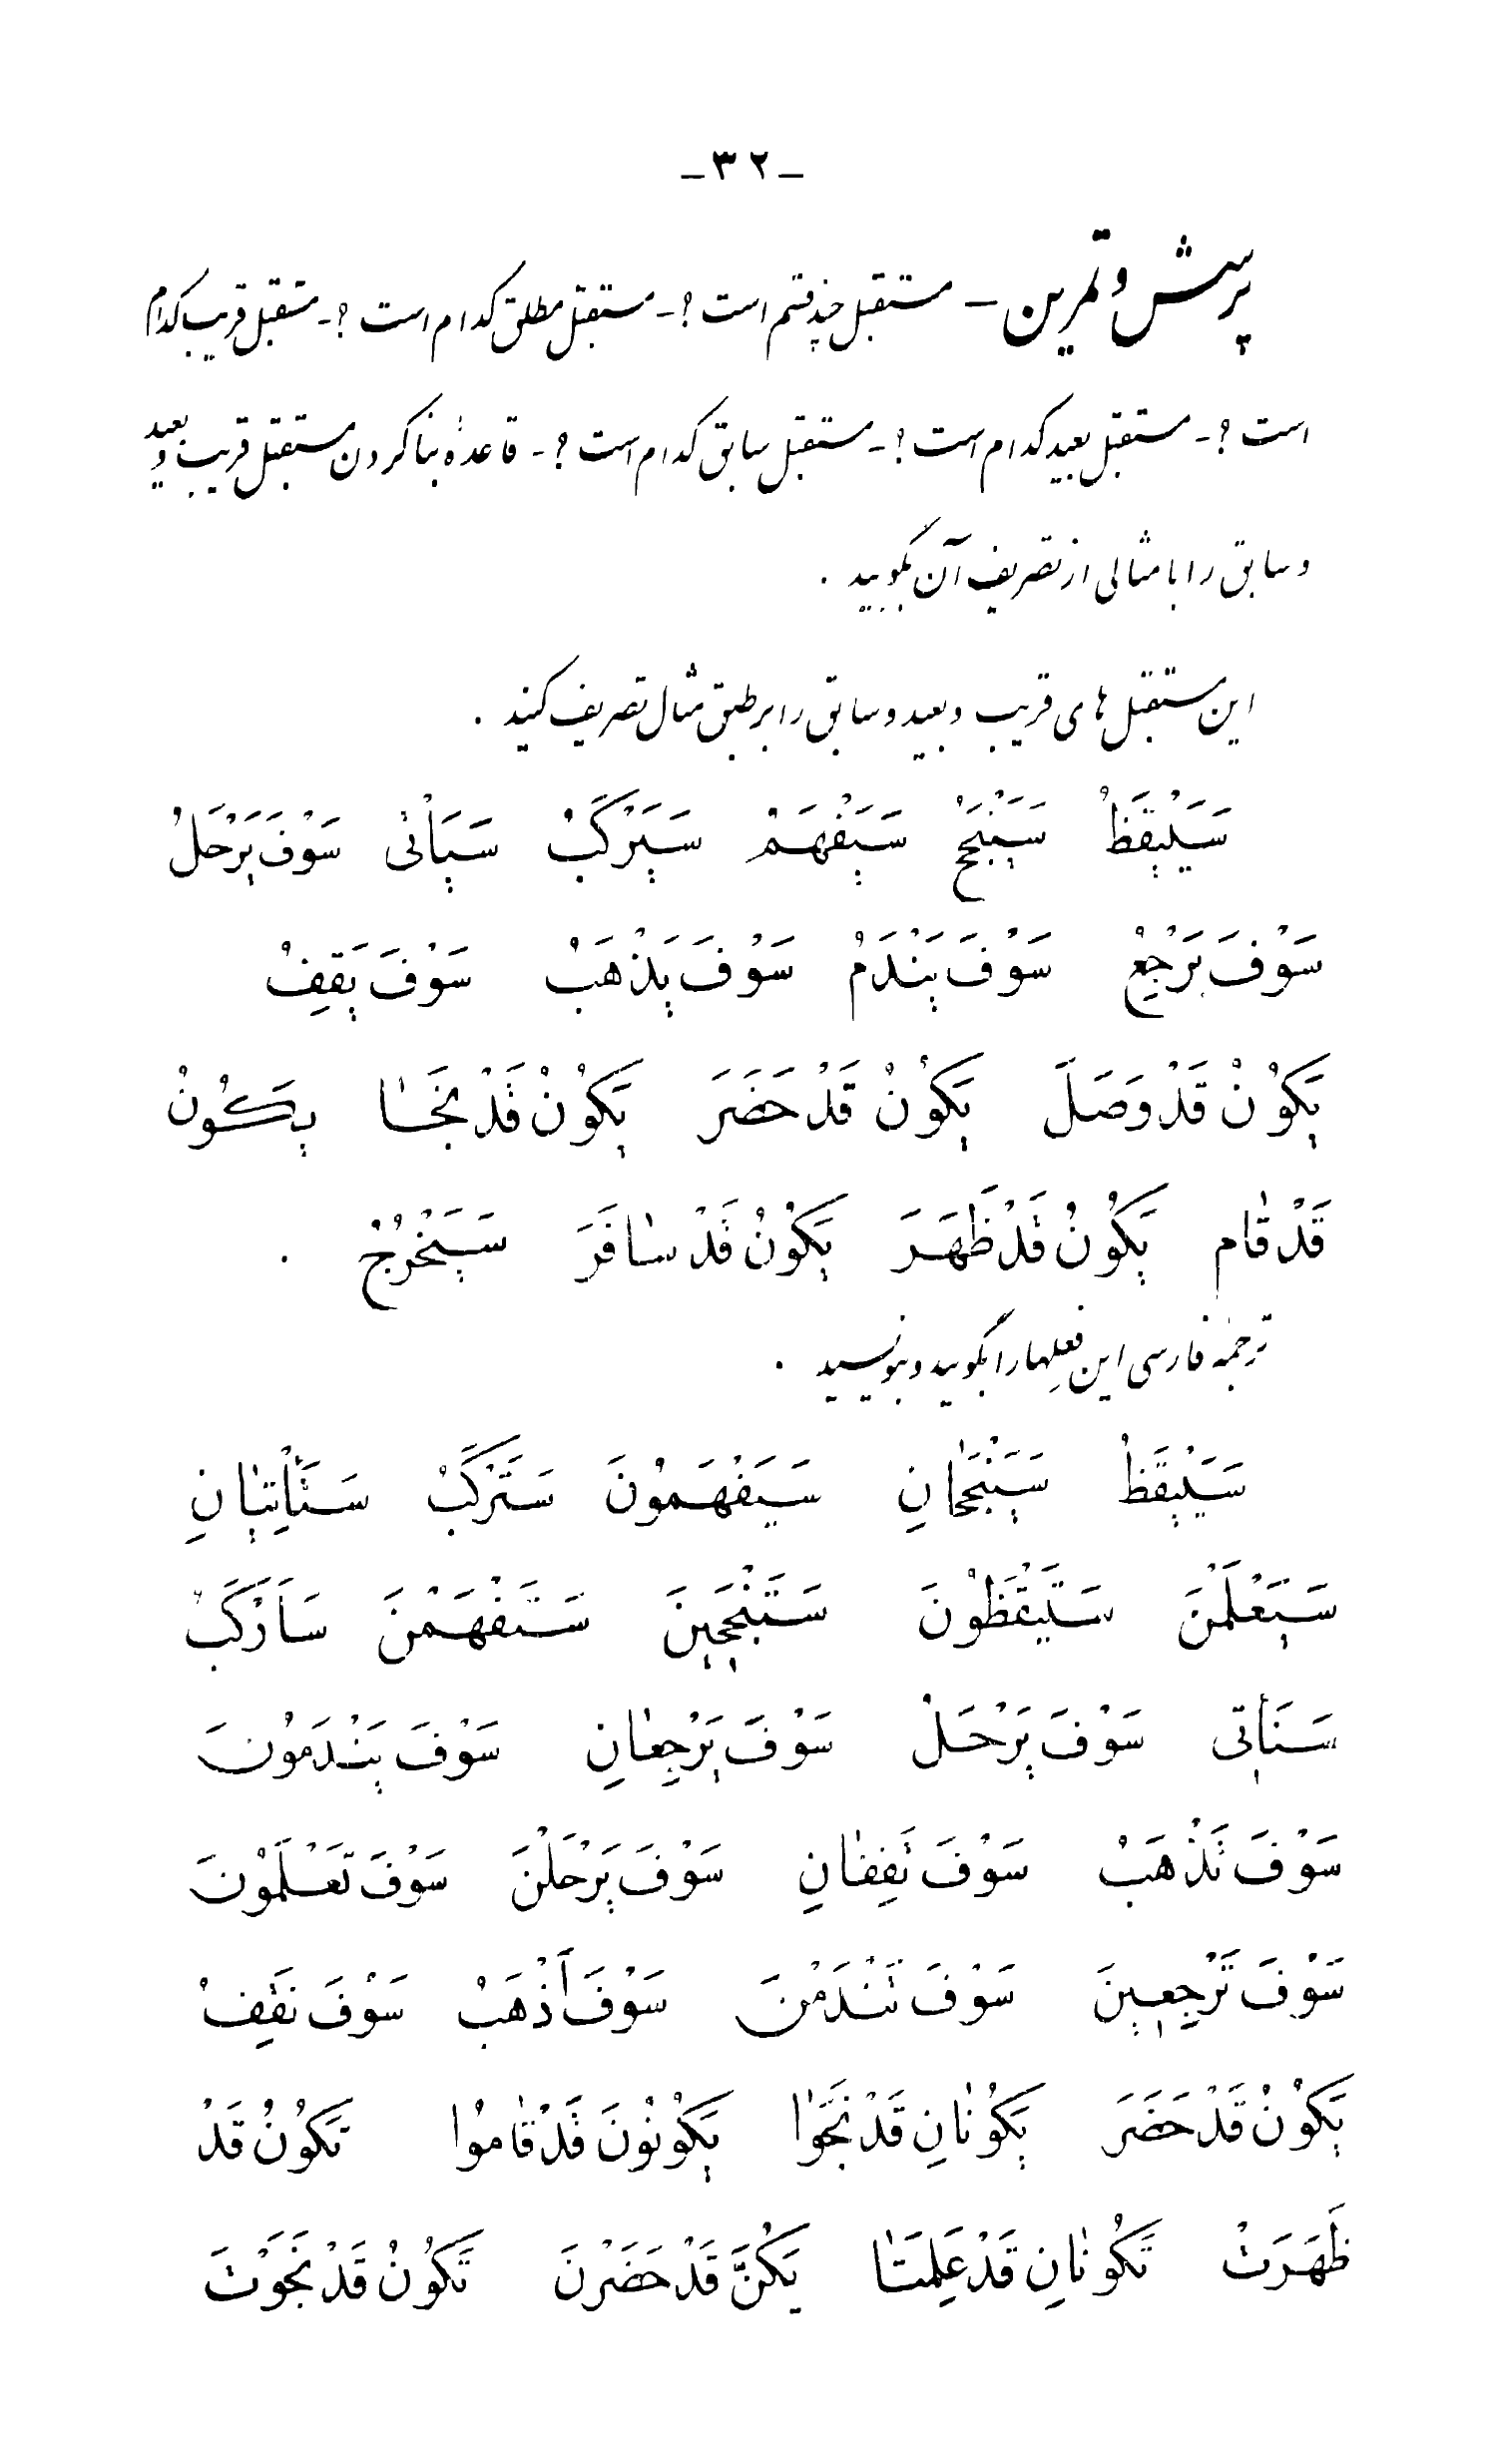 -۳۲-
پرسش و تمرین - مستقبل چند قسم است ؟- مستقبل مطلق کدام است ؟- مستقبل قریب کدام
است ؟- مستقبل بعید کدام است ؟- مستقبل سابق کدام است ؟- قاعدهٔ بنا کردن مستقبل قریب و بعید
و سابق را با مثالی از تصریف آن بگویید .
این مستقبل های قریب و بعید و سابق را بر طبق مثال تصریف کنید .
سَيَيْقَظُ سَيَنْجَحُ سَيَفْهَمُ سَيَرْكَبُ سَيَأْتی سَوْفَ يَرْحَلُ
سَوْفَ يَرْجِعُ سَوْفَ يَنْدَمُ سَوْفَ يَذْهَبُ سَوْفَ يَقِفُ
يَكُوْنُ قَدْ وَصَلَ يَكُوْنُ قَدْ حَضَرَ يَكُوْنُ قَدْ نَجَا يَكُونُ
قَدْ قام يَكُونُ قَدْ ظَهَرَ يَكُوْنُ قَدْ سافَرَ سَيَخْرُجُ .
ترجمه فارسی این فعلها را بگویید و بنویسید .
سَيَيْقَظُ سَيَنْجَحانِ سَيَفْهَمُونَ سَتَرْكَبُ سَتَأْتِيانِ
سَيَعْلَمْنَ سَتَيْقَظُوْنَ سَتَنْجَحِينَ سَتَفْهَمْنَ سَاَرْكَبُ
سَنَأتی سَوْفَ يَرْحَلُ سَوْفَ يَرْجِعانِ سَوْفَ يَنْدَمُونَ
سَوْفَ تَذْهَبُ سَوْفَ تَقِفانِ سَوْفَ يَرْحَلْنَ سَوْفَ تَعْلَمُوْنَ
سَوْفَ تَرْجِعينَ سَوْفَ تَنْدَمْنَ سَوْفَ اَذْهَبُ سَوْفَ نَقِفُ
يَكُوْنُ قَدْ حَضَرَ يَكُوْنانِ قَدْ نَجَوٰا يَكُوْنُوْنَ قَدْ قامُوا تَكُوْنُ قَدْ
ظَهَرَتْ تَكُوْنانِ قَدْ عَلِمَتَا يَكُنَّ قَدْ حَضَرْنَ تَكُوْنُ قَدْ نَجَوْتَ